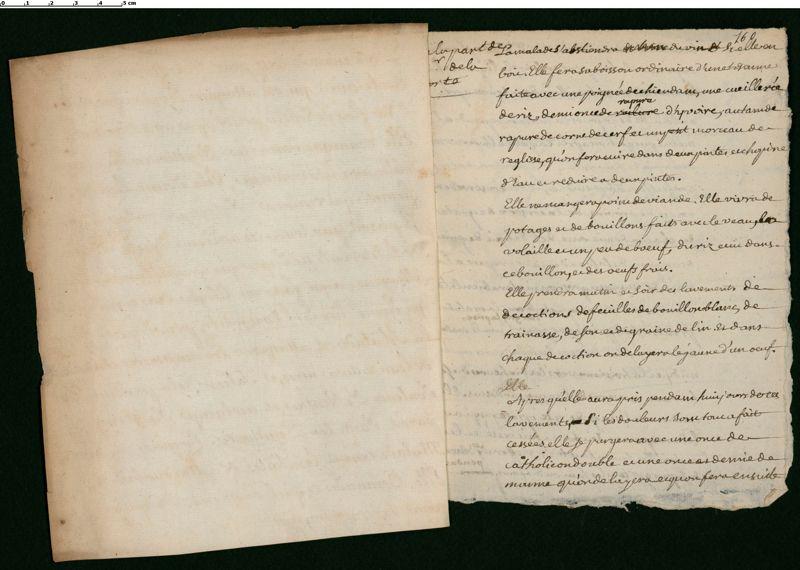 160
la part de
de la
La malade s'abstiendra du vin et si elle en
boit. Elle fera sa boisson ordinaire d'une tisanne
faite avec une poignée de chiendam, une cueillerée
de riz, demi once de rapure d'hyvoire, autam de
rapure de corne de cerf et un petit morceau de
reglisse, qu'on fera cuire dans deux pintes et chopine
d'Eau et reduire a deux pintes.
Elle ne mangera poin de viande. Elle vivra de
potages et de bouillons faits avec le veau, la
volaille et un peu de boeuf, du riz cuit dans
ce bouillon, et des oeufs frais.
Elle prendra mattin et soir des lavements de
decoctions de feuilles de bouillon blanc, de
trainasse, de son et de graine de lin et dans
chaque decoction on delayera le jaune d'un oeuf.
Elle
Apres qu'elle aura pris pendam huit jours de ces
lavements, si les douleurs sont tout a fait
cessées, elle se purgera avec une once de
catholicon double et une once et demie de
manne qu'on delayera et qu'on fera ensuite